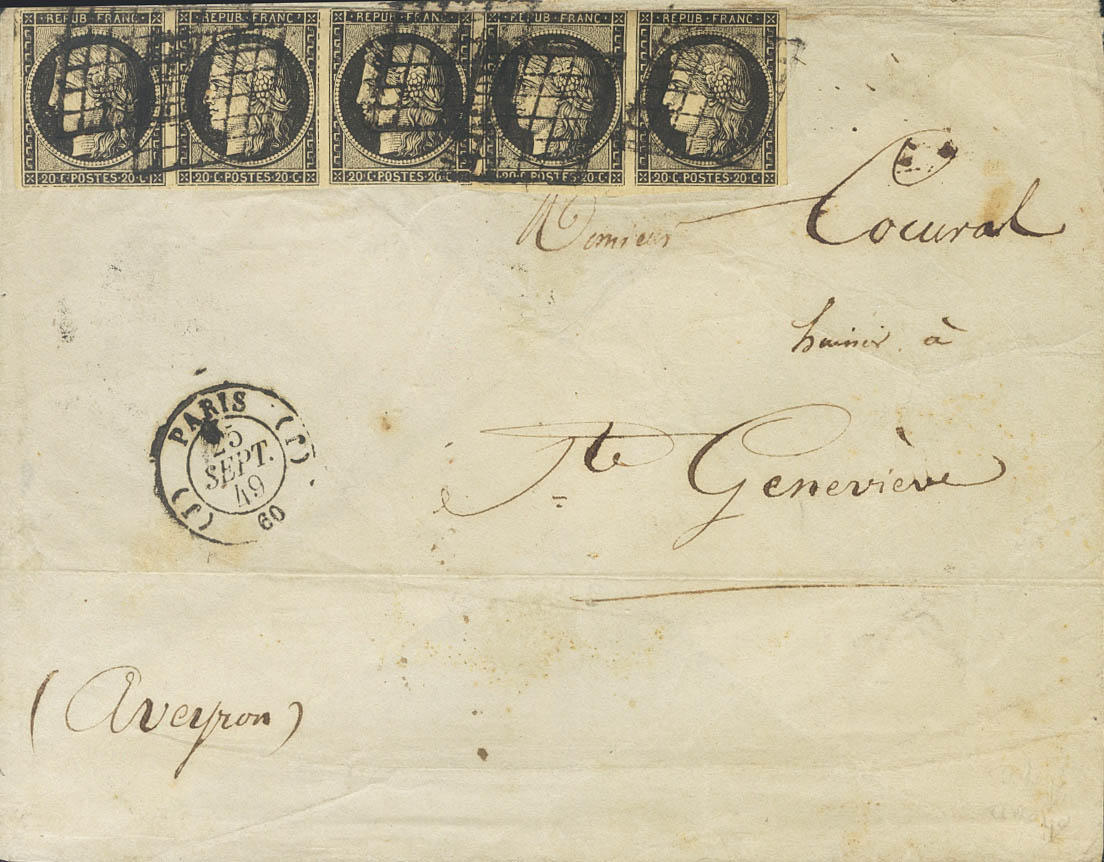 REPUB·FRANC· REPUB·FRANC· REPUB·FRANC· REPUB·FRANC· REPUB·FRANC·
20·C·POSTES·20·C· 20·C·POSTES·20·C· 20·C·POSTES·20·C· 20·C·POSTES·20·C· 20·C·POSTES·20·C·
Monsieur Cocural
huissier à
Ste Geneviève
PARIS
25
SEPT.
49
(J)
60
(Aveyron)